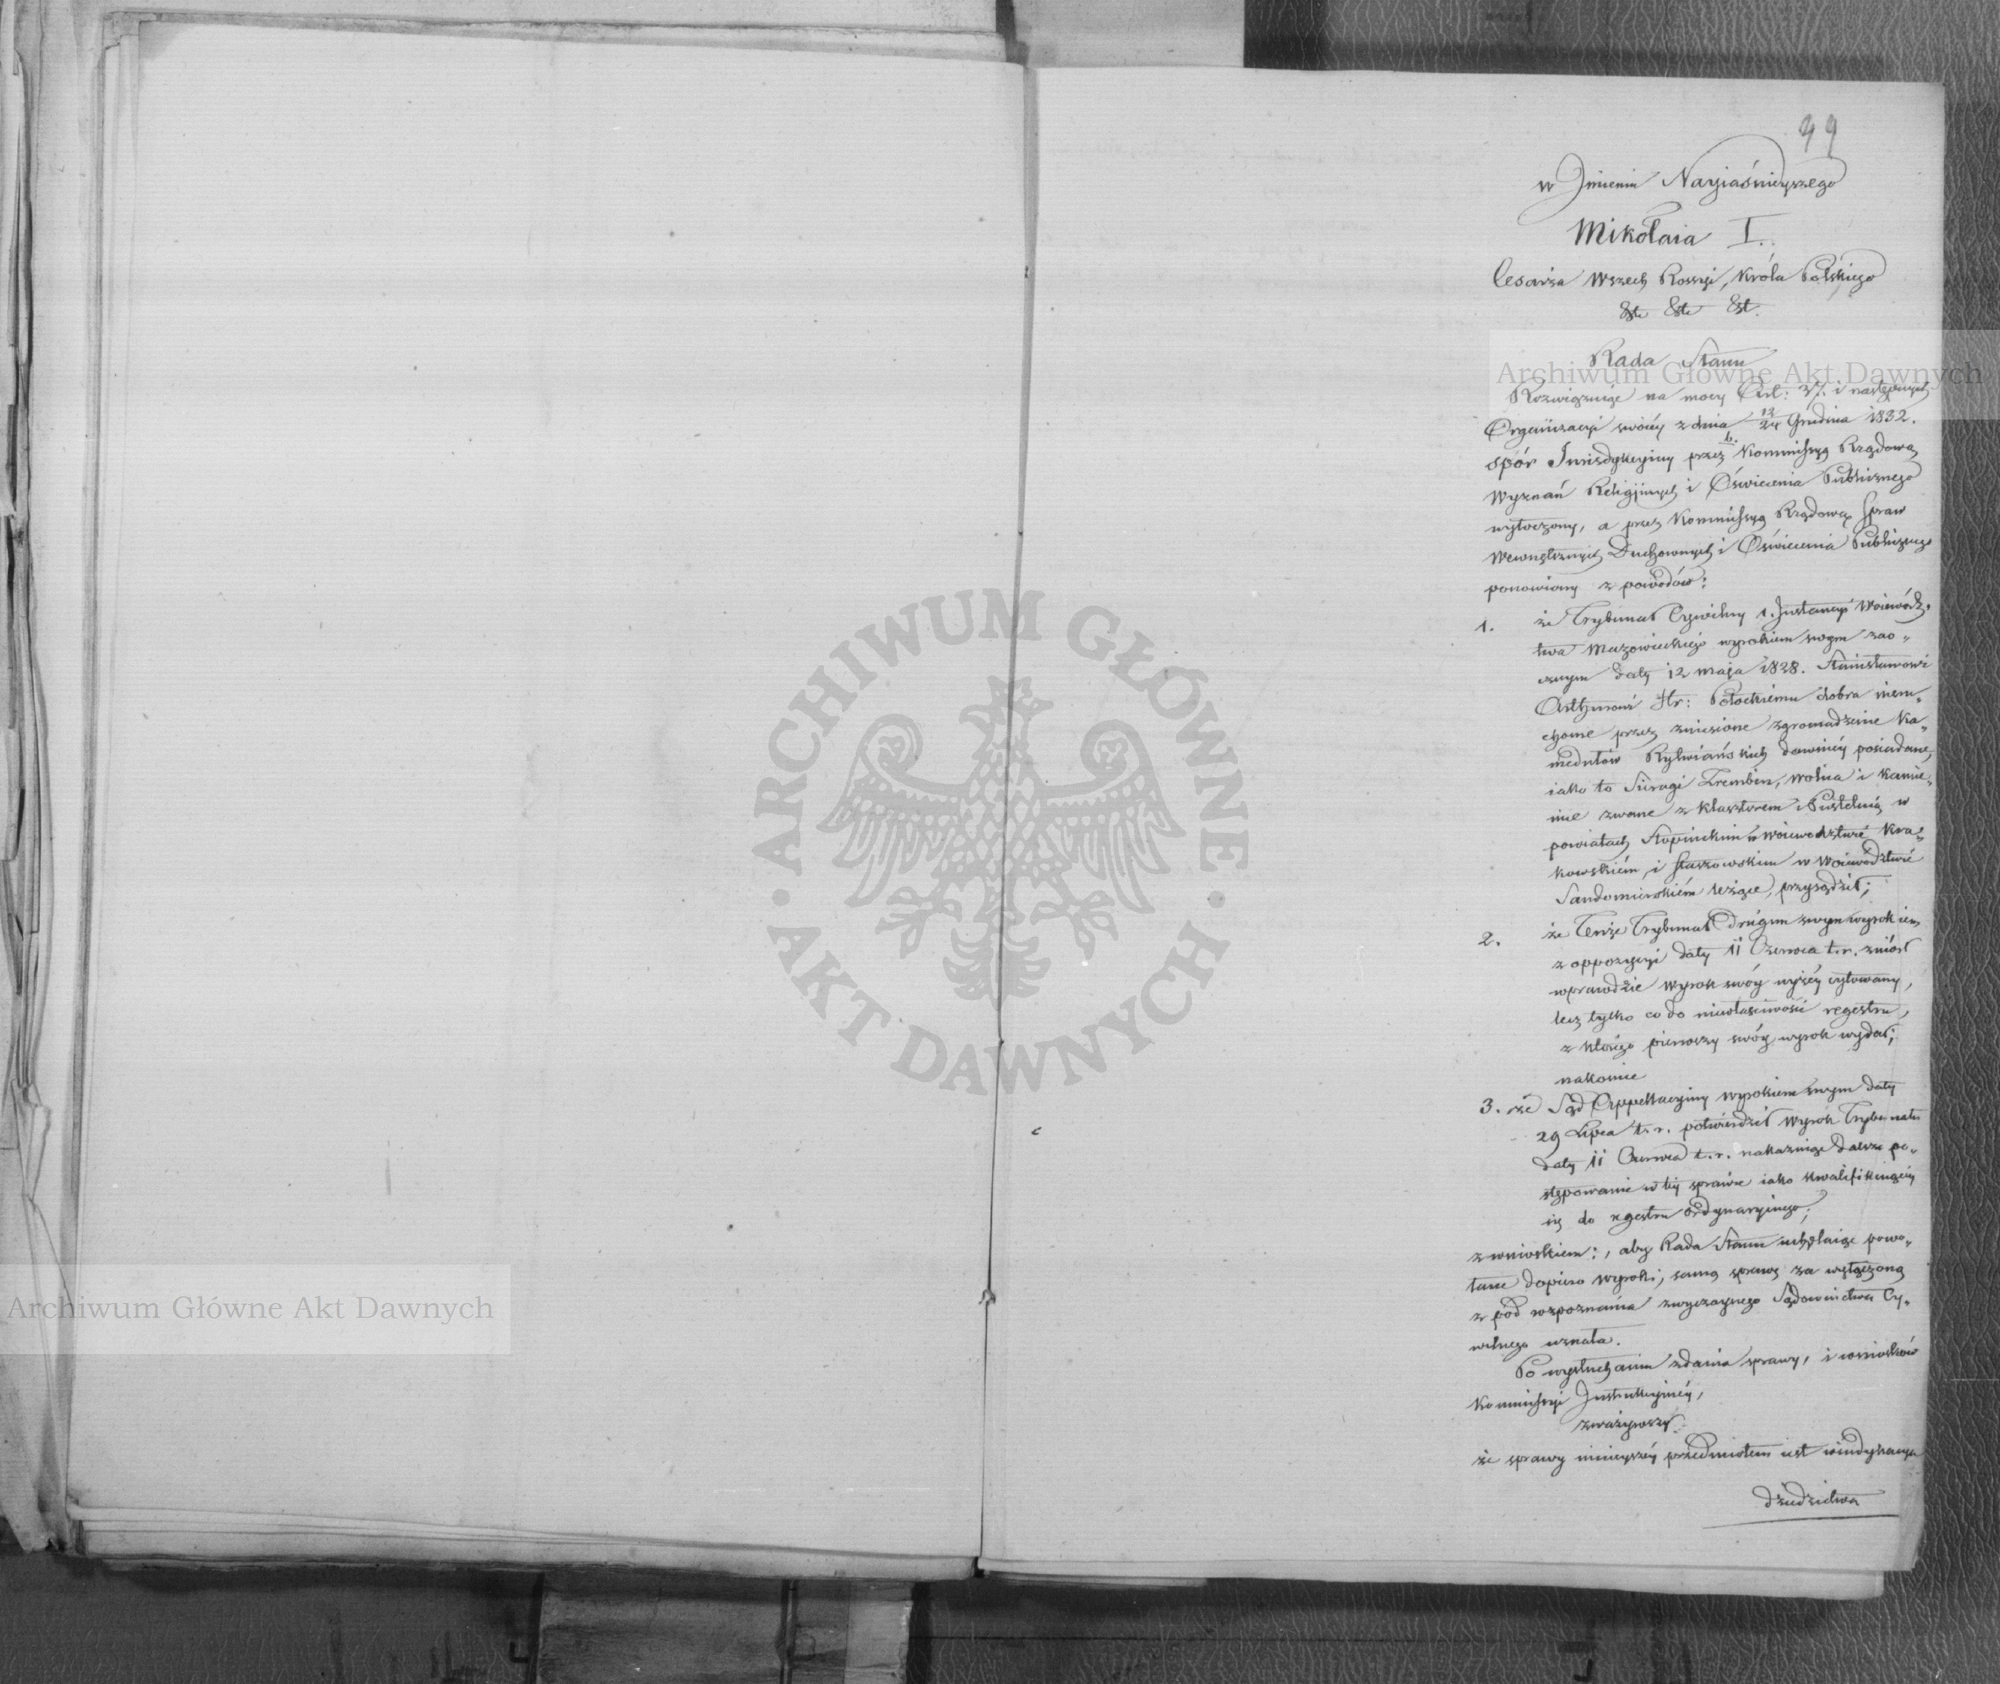 49
w Jmieniu Nayiaśnieyszego
Mikołaia I.
Cesarza Wszech Rossyi, Króla Polskiego
&tc &tc &t.
Rada Stanu
Rozwiązuiąc na mocy Art: 37. i następnych
Organizacyi swoiéy z dnia 12/24 Grudnia 1832.
spór Jurisdykcyiny przez b. Kommissyą Rządową
Wyznań Religijnych i Oświecenia Publicznego
wytoczony, a przez Kommissyą Rządową Spraw
Wewnętrznych Duchownych i Oświecenia Publicznego
ponowiony z powodów:
1. że Trybunał Cywilny 1. Instancyi Woiewódz„
twa Mazowieckiego wyrokiem swym zao„
cznym daty 12 maja 1828. Stanisławowi
Hr: Potockiemu dobra nieru„
chome przez zniesione zgromadzenie Ka„
medułów Rytwiańskich dawniéy posiadane,
iako to Sieragi Zrembin, Wolna i Kamie„
nie zwane z klasztorem i Pustelnią w
powiatach Stopnickim w Woiewodztwie Kra„
kowskiém, i Staszowskim w Woiewództwie
Sandomirskiém leżące, przysądził;
2. że Tenże Trybunał drugim swym wyrokiem
z oppozycyi daty 11 Czerwca t.r. zniósł
wprawdzie wyrok swóy wyżéy cytowany,
lecz tylko co do niewłaściwości regestru,
z którego pierwszy swóy wyrok wydał;
nakoniec
3. że Sąd Appellacyiny wyrokiem swym daty
29 Lipca t.r. potwierdził wyrok Trybunału
daty 11 Czerwca t.r. nakazuiąc dalsze po„
stępowanie w téy sprawie iako kwalifikuiącéy
się do regestru ordynaryinego;
z wnioskiem:, aby Rada Stanu uchylaiąc powo„
łane dopiero wyroki, samą sprawę za wyłączoną
z pod rozpoznania zwyczaynego Sądownictwa Cy„
wilnego uznała.
Po wysłuchaniu zdania sprawy, i wniosków
Kommissyi Instrukcyinéy,
zważywszy:
że sprawy ninieyszéy przedmiotem iest windykacya
dziedzictwa
Archiwum Główne Akt Dawnych
Archiwum Główne Akt Dawnych
ARCHIWUM GŁÓWNE
AKT DAWNYCH